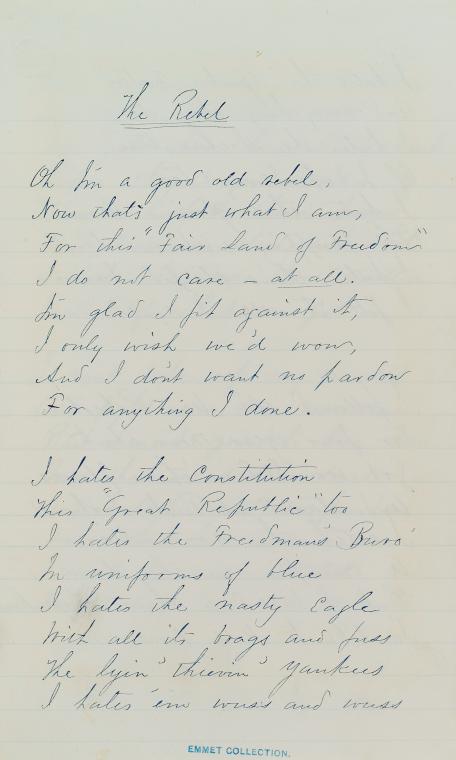 The Rebel
Oh I'm a good old rebel,
Now that's just what I am,
For this "Fair Land of Freedom"
I do not care – at all.
I'm glad I fit against it,
I only wish we'd won,
And I don't want no pardon
For anything I done.
I hates the Constitution
This "Great Republic" too
I hates the Freedman's Buro
In uniforms of blue
I hates the nasty Eagle
With all its brags and fuss
The lyin' thievin' Yankees
I hates 'em wuss and wuss
EMMET COLLECTION.